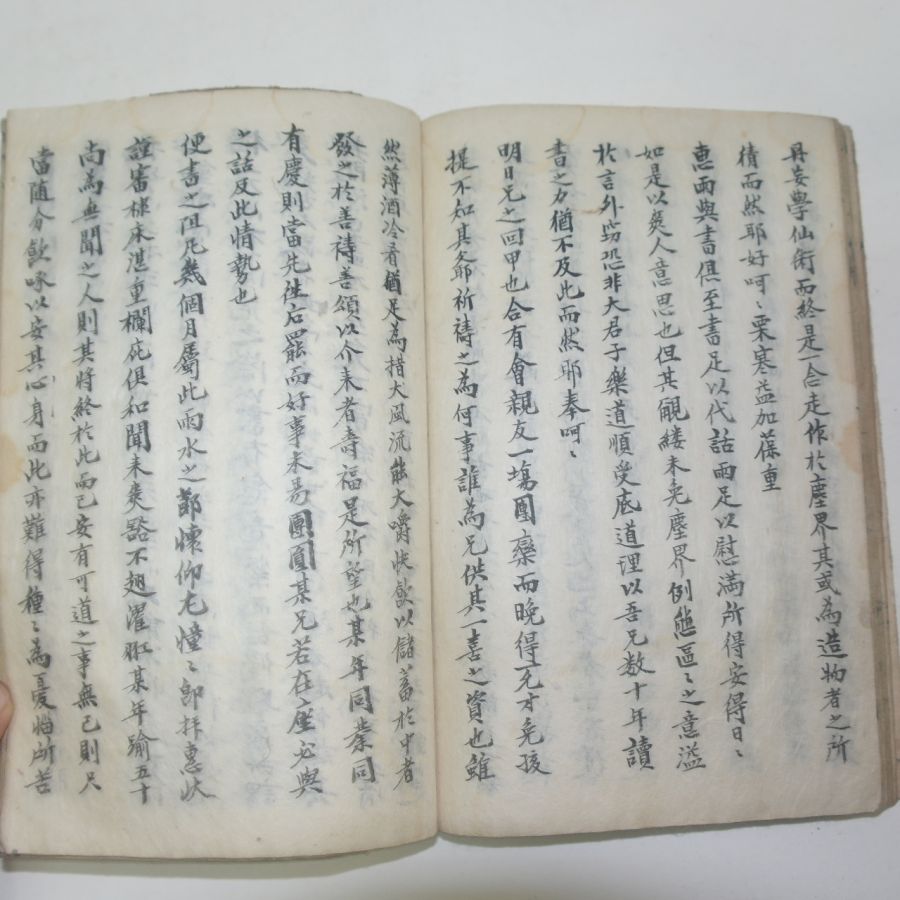 丹妄學仙術而終是一合走作於塵界其或為造物者之所
猜而然耶好呵〻栗寒益加葆重
惠雨與書俱至書足以代話雨足以慰滿所得安得日〻
如是以爽人意思也但其覼縷未免塵界例態區〻之意溢
於言外窃恐非大君子樂道順受底道理以吾兄数十年讀
書之力猶不及此而然耶奉呵〻
明日兄之回甲也合有會親友一塲團欒而晚得一兒才免孩
提不知其爺祈禱之為何事誰為兄供其一喜之資也雖
然薄酒冷肴猶足為措大風流能大嚼快飲以儲蓄於中者
發之於善禱善頌以介来者壽福是所望也某年同業同
有慶則當先徃后罷而好事未易團圓某兄若在座必與
之話及此情勢也
便書之阻死幾個月屬此雨水之節懷仰尤憧〻即拜惠狀
謹審棣床湛重欄庇俱和聞来爽豁不翅濯熱某年踰五十
尚為無聞之人則其將終於此而已安有可道之事無已則只
當随分飲啄以安其心身而此亦難得種〻為憂惱所苦